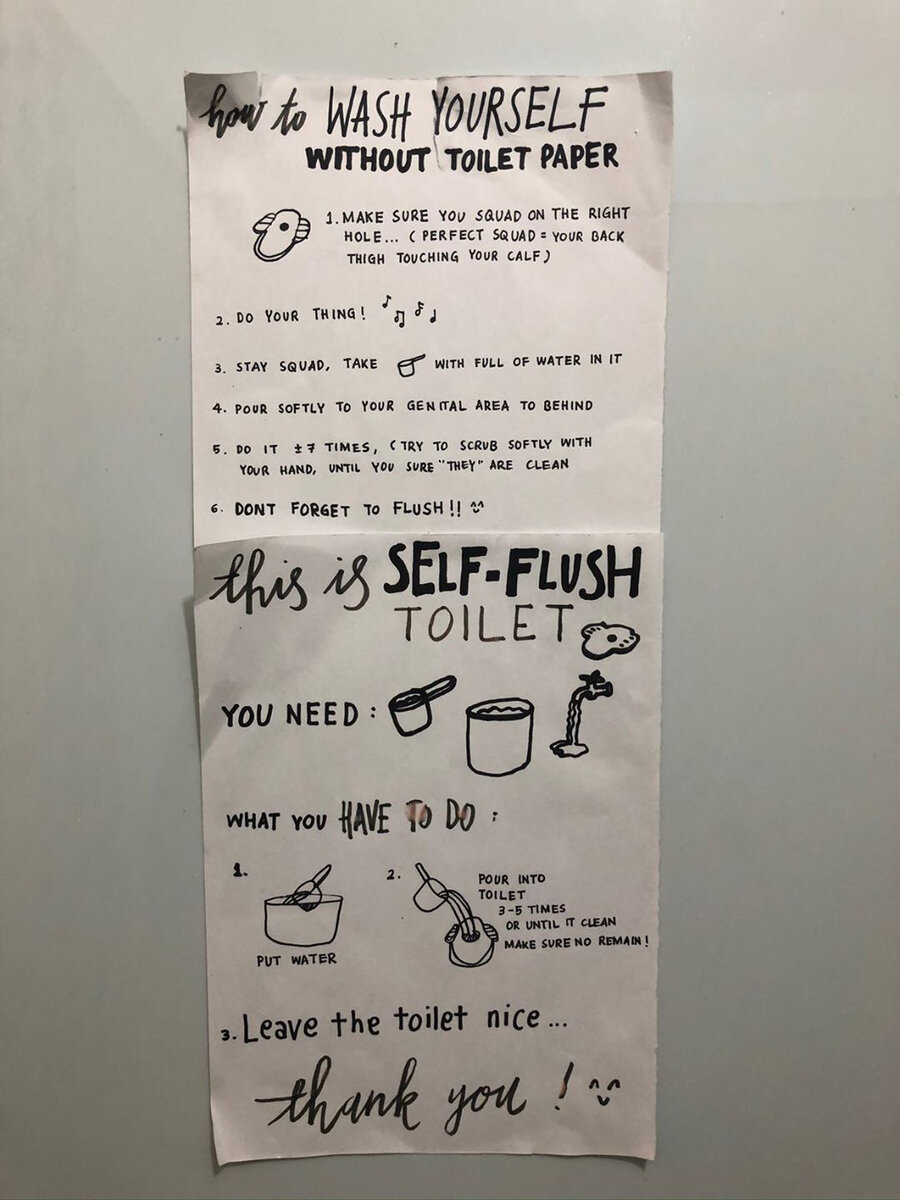 how to WASH YOURSELF
WITHOUT TOILET PAPER
1. MAKE SURE YOU SQUAD ON THE RIGHT
HOLE... ( PERFECT SQUAD = YOUR BACK
THIGH TOUCHING YOUR CALF )
2. DO YOUR THING!
3. STAY SQUAD, TAKE WITH FULL OF WATER IN IT
4. POUR SOFTLY TO YOUR GENITAL AREA TO BEHIND
5. DO IT ±7 TIMES, ( TRY TO SCRUB SOFTLY WITH
YOUR HAND, UNTIL YOU SURE "THEY" ARE CLEAN
6. DONT FORGET TO FLUSH!!
this is SELF-FLUSH
TOILET
YOU NEED :
WHAT YOU HAVE TO DO :
1.
PUT WATER
2.
POUR INTO
TOILET
3-5 TIMES
OR UNTIL IT CLEAN
MAKE SURE NO REMAIN!
3. Leave the toilet nice...
thank you !